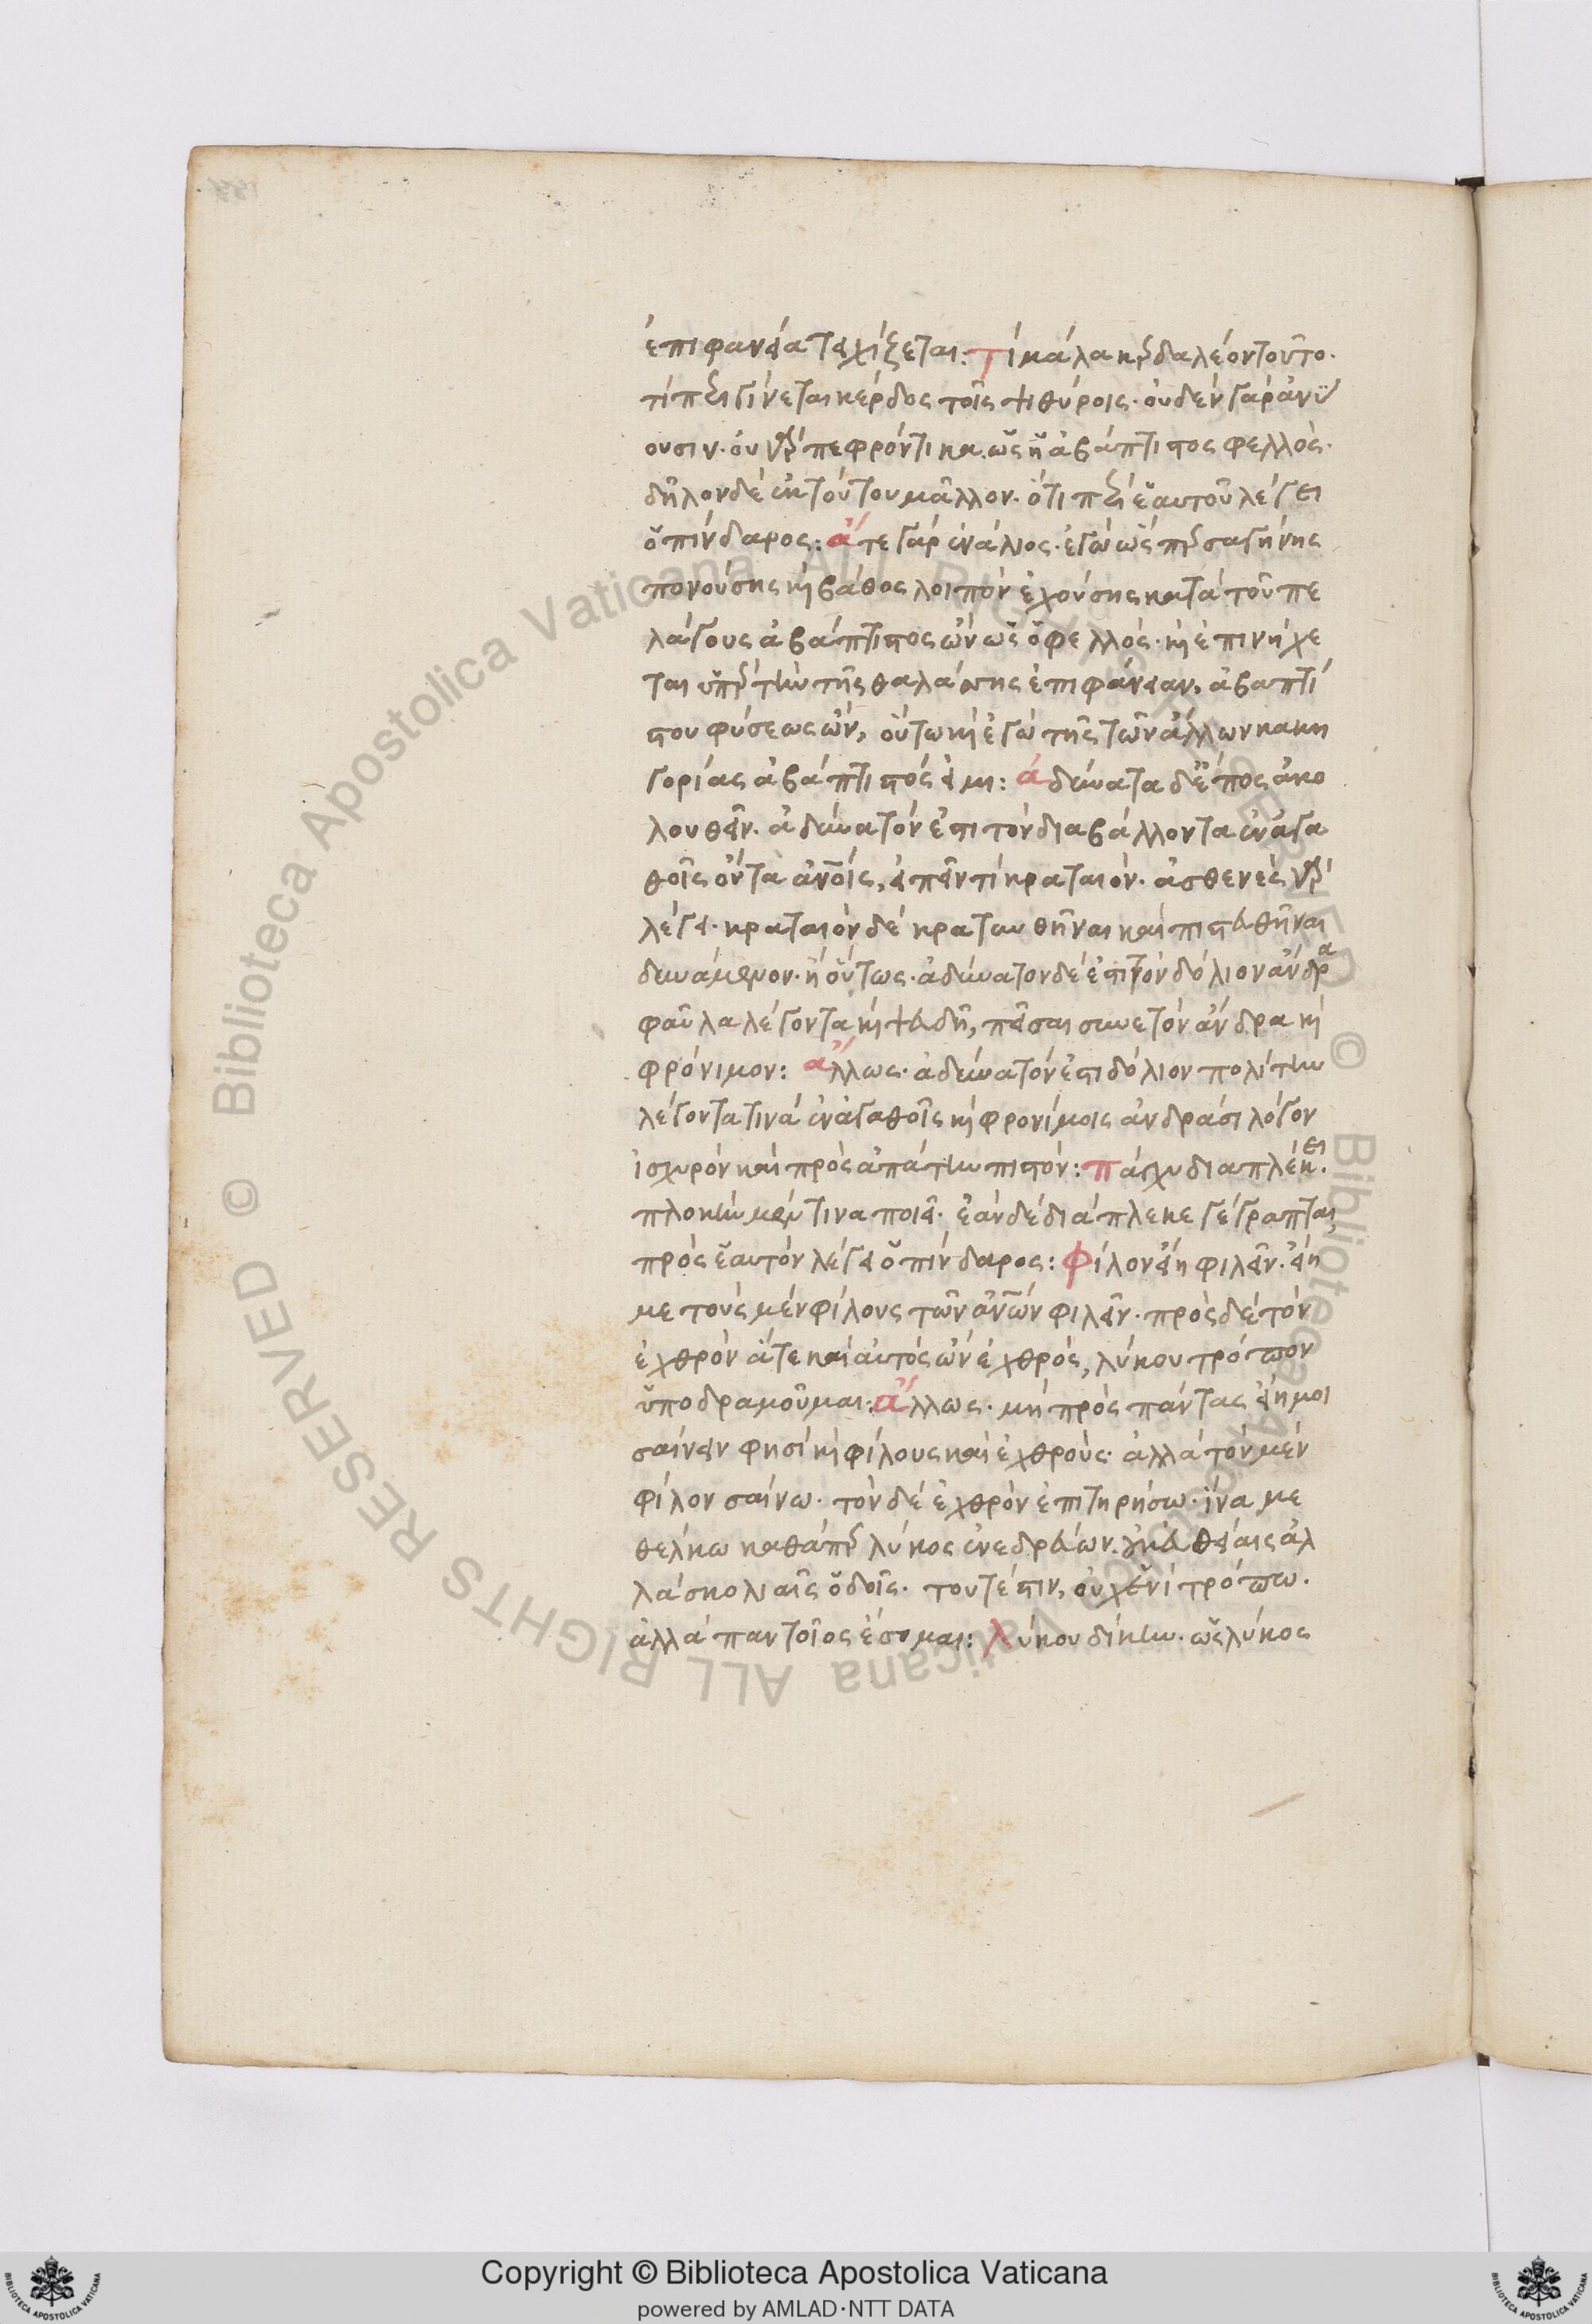 ἐπιφανεία τειχίζεται: Τί μάλα κερδαλέον τοῦτο·
τί περιγίνεται κέρδος τοῖς ψιθύροις· οὐδὲν γὰρ ἀνύ
ουσιν· οὐ γὰρ πεφρόντικα ὡς ἡ ἀβάπτιστος φελλός·
δῆλον δὲ ἐκ τούτου μᾶλλον· ὅτι περὶ ἑαυτοῦ λέγει
ὁ πίνδαρος: ἅτε γὰρ ἐνάλιος· ἐγὼ ὥσπερ σαγήνης
πονούσης καὶ βάθος λοιπὸν ἐχούσης κατὰ τοῦ πε
λάγους ἀβάπτιστος ὢν ὡς ὁ φελλός· καὶ ἐπινήχε
ται ὑπὲρ τὴν τῆς θαλάσσης ἐπιφάνειαν, ἀβαπτί
στου φύσεως ὤν, οὕτω καὶ ἐγὼ τῆς τῶν ἄλλων κακη
γορίας ἀβάπτιστός εἰμι: ἀδύνατα δ' ἔπος ἀκο
λουθεῖν· ἀδύνατόν ἐστι τὸν διαβάλλοντα ἐν ἀγα
θοῖς ὄντα ἀνοις, εἰπεῖν τί κραταιόν· ἀσθενὲς γὰρ
λέγει· κραταιὸν δὲ κρατυνθῆναι καὶ πιστευθῆναι
δυνάμενον· ἢ οὕτως· ἀδύνατον δέ ἐστι τὸν δόλιον ἄνδρα
φαῦλα λέγοντα καὶ ψευδῆ, πεῖσαι συνετὸν ἄνδρα καὶ
φρόνιμον: ἄλλως· ἀδύνατόν ἐστι δόλιον πολίτην
λέγοντα τινὰ ἐν ἀγαθοῖς καὶ φρονίμοις ἀνδράσι λόγον
ἰσχυρὸν καὶ πρὸς ἀπάτην πιστόν: πάγχυ διαπλέκει·
πλοκὴν μέν τινα ποιεῖ· ἐὰν δὲ διάπλεκε γέγραπται
πρὸς ἑαυτὸν λέγει ὁ πίνδαρος: Φίλον εἴη φιλεῖν· εἴη
με τοὺς μὲν φίλους τῶν ἀνων φιλεῖν· πρὸς δὲ τὸν
ἐχθρὸν ἅτε καὶ αὐτὸς ὢν ἐχθρός, λύκου τρόπον
ὑποδραμοῦμαι: ἄλλως· μὴ πρὸς πάντας εἴη μοι
σαίνειν φησὶ καὶ φίλους καὶ ἐχθρούς· ἀλλὰ τὸν μὲν
φίλον σαίνω· τὸν δὲ ἐχθρὸν ἐπιτηρήσω· ἵνα με
θελκω καθάπερ λύκος ἐνεδρεύων· οὐκ εὐθείαις ἀλ
λὰ σκολιαῖς ὁδοῖς· τουτέστιν, οὐχ ἑνὶ τρόπω·
ἀλλὰ παντοῖος ἔσομαι: λύκου δίκην· ὡς λύκος
Copyright © Biblioteca Apostolica Vaticana
powered by AMLAD·NTT DATA